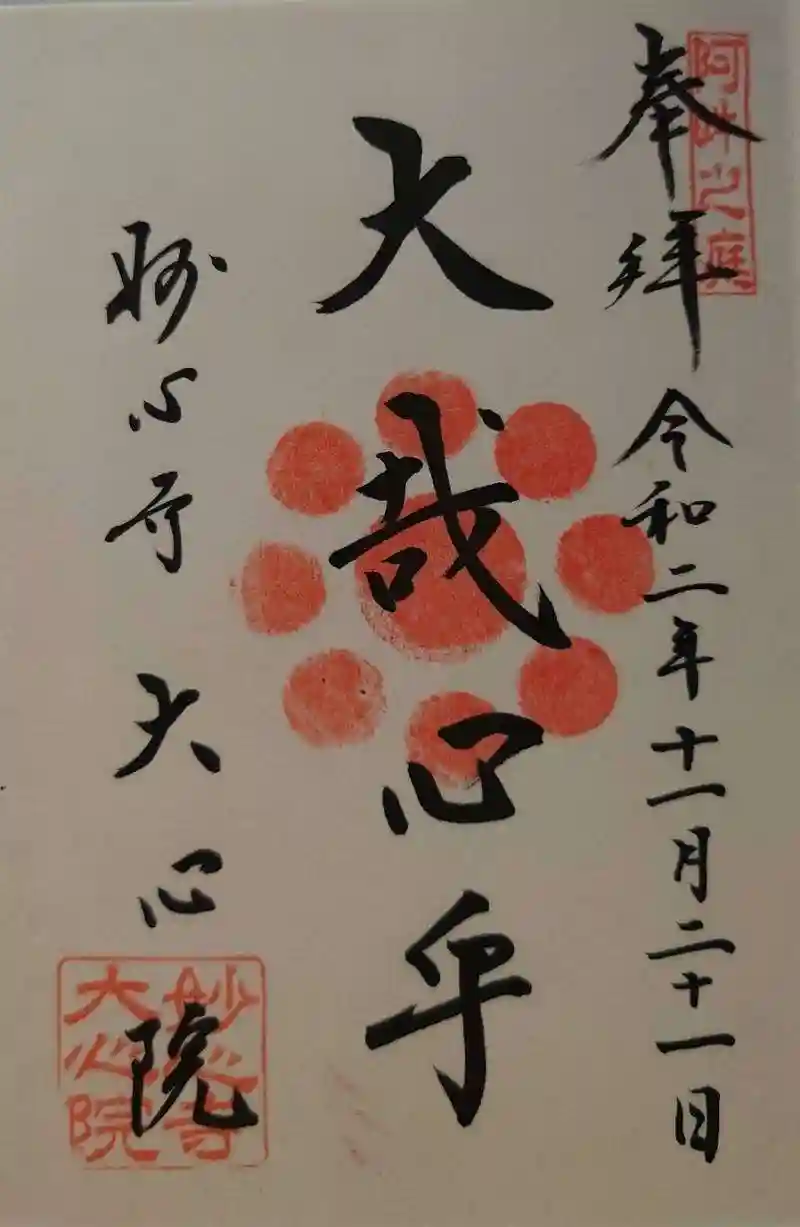 奉拝 令和二年十一月二十一日
阿吽之庭
大哉心乎
妙心寺 大心院
妙心寺
大心院